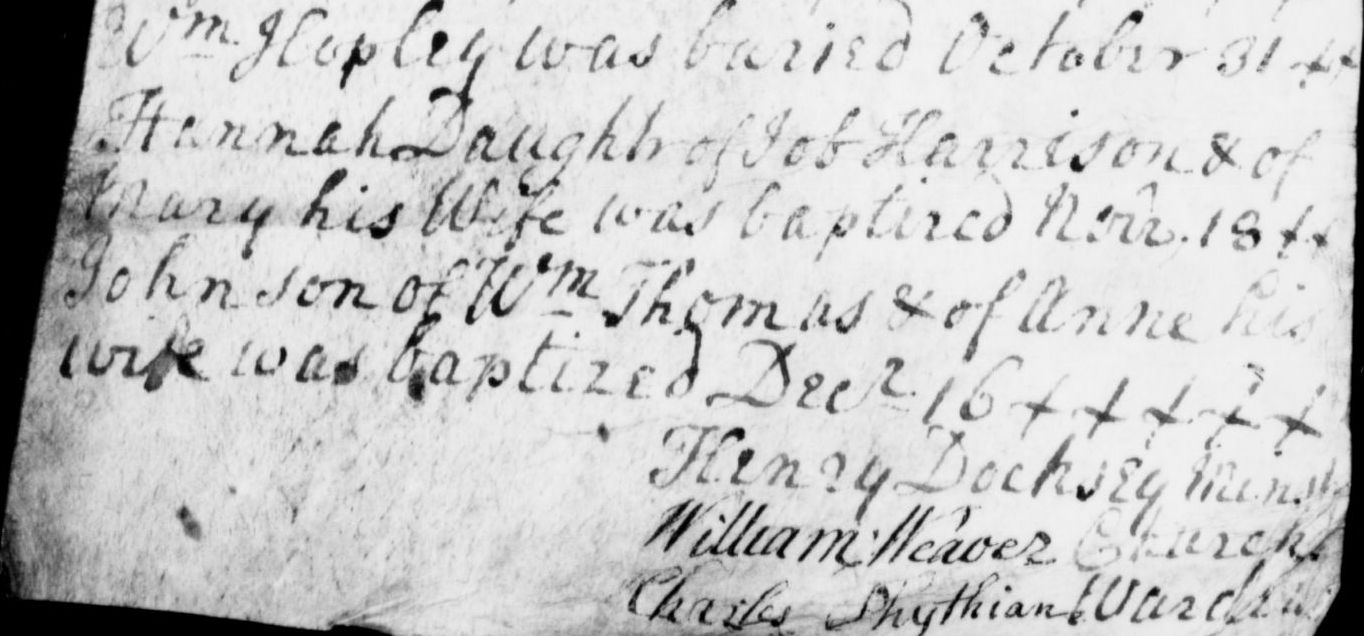 Wm Hopley was buried October 31 ++
Hannah Daughtr of Job Harrison & of
Mary his Wife was baptized Novr. 18 ++
John son of Wm Thomas & of Anne his
wife was baptized Decr 16 + + + + +
Henry Docksey Minstr
William Weaver Church
Charles Phythian Wardens